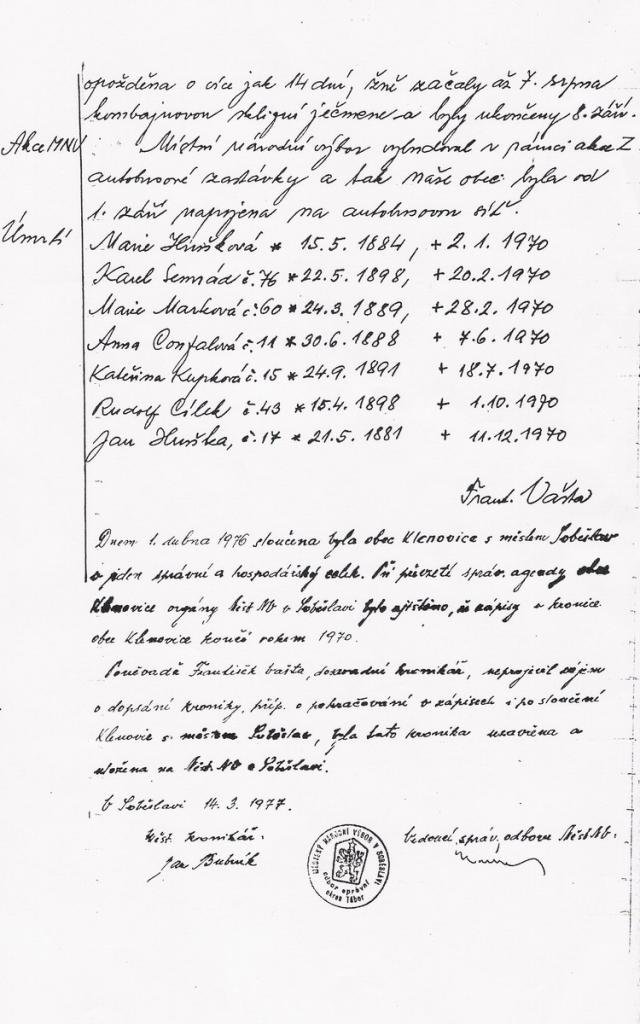 opožděna o více jak 14 dní, žně začaly až 7. srpna
kombajnovou sklizní ječmene a byly ukončeny 8. září.
Akce MNV
Místní národní výbor vybudoval v rámci akce Z
autobusové zastávky a tak naše obec byla od
1. září napojena na autobusovou síť.
Úmrtí
Marie Hrušková * 15.5. 1884, + 2. 1. 1970
Karel Semrád č. 76 * 22.5. 1898, + 20.2. 1970
Marie Marková č. 60 * 24.3. 1889, + 28.2. 1970
Anna Confalová č. 11 * 30.6. 1888 + 7.6. 1970
Kateřina Kupková č. 15 * 24.9. 1891 + 18.7. 1970
Rudolf Cílek č. 43 * 15.4. 1898 + 1.10. 1970
Jan Hruška, č. 17 * 21.5. 1881 + 11.12.1970
Frant. Vašta
Dnem 1. dubna 1976 sloučena byla obec Klenovice s městem Soběslav
v jeden správní a hospodářský celek. Při převzetí správ. agendy obce
Klenovice orgány Měst NV v Soběslavi bylo zjištěno, že zápisy v kronice
obce Klenovice končí rokem 1970.
Poněvadž František Vašta, dosavadní kronikář, neprojevil zájem
o dopsání kroniky, příp. o pokračování v zápisech i po sloučení
Klenovic s městem Soběslav, byla tato kronika uzavřena a
uložena na Měst NV v Soběslavi.
V Soběslavi 14. 3. 1977.
Měst. kronikář.
Vedoucí správ. odboru Měst NV.
Jan Bubník
MĚSTSKÝ NÁRODNÍ VÝBOR V SOBĚSLAVI
odbor správní
okres Tábor